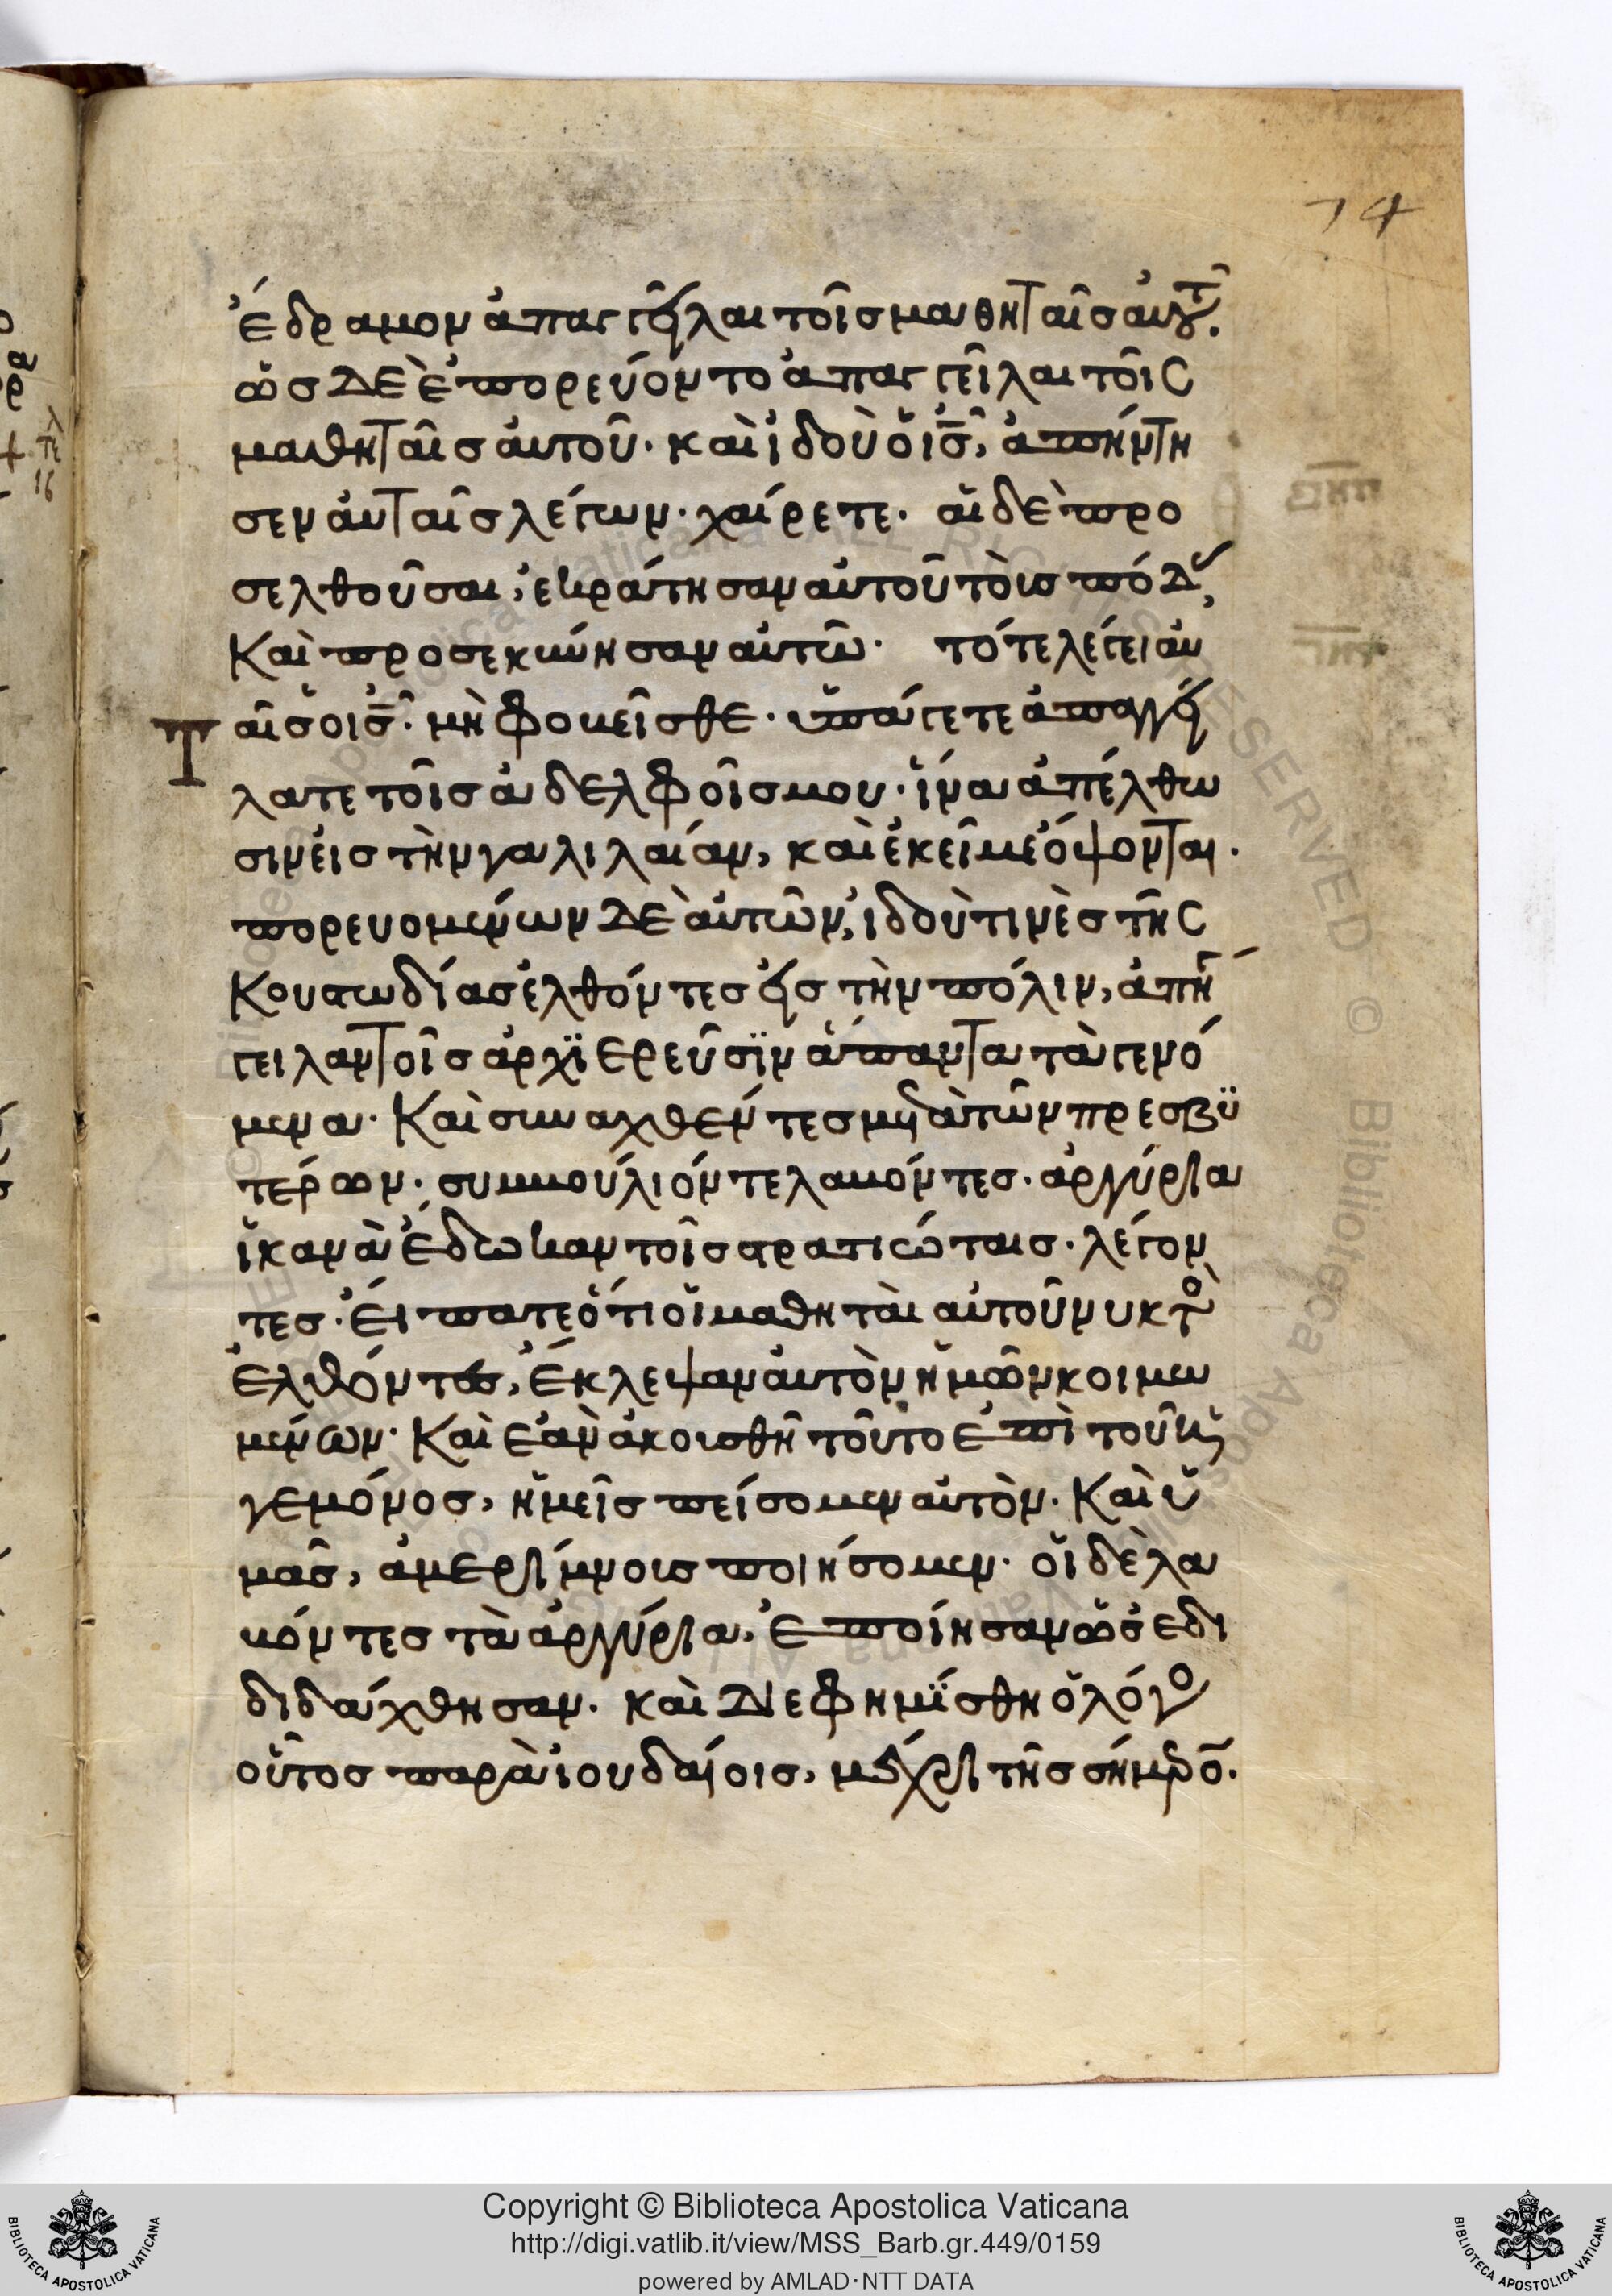 74
ἔδραμον ἀπαγγεῖλαι τοῖσ μαθηταῖσ αὐτοῦ.
ὡσ δὲ ἐπορεύοντο ἀπαγγεῖλαι τοῖσ
μαθηταῖσ αὐτοῦ· καὶ ἰδοὺ ὁ ισ̅, ἀπήντη
σεν αὐταῖσ λέγων· χαίρετε· αἱ δὲ προ
σελθοῦσαι, ἐκράτησαν αὐτοῦ τοὺσ πόδας,
Καὶ προσεκύνησαν αὐτῶ· τότε λέγει αὐ
Τ ταῖσ ὁ ισ̅· μὴ φοβεῖσθε· ὑπάγετε ἀπαγγεί
λατε τοῖσ ἀδελφοῖσ μου· ἵνα ἀπέλθω
σιν εἰσ τὴν γαλιλαίαν, καὶ ἐκεῖ με ὄψονται·
πορευομένων δὲ αὐτῶν, ἰδού τινὲσ τῆσ
Κουστωδίασ ἐλθόντεσ εἰσ τὴν πόλιν, ἀπήγ
γειλαν τοῖσ ἀρχϊερεῦσϊν ἅπαντα τὰ γενό
μενα· Καὶ συναχθέντεσ μετὰ τῶν πρεσβϋ
τέρων· συμβούλιόν τε λαβόντεσ· ἀργύρια
ἱκανὰ ἔδωκαν τοῖσ στρατιώταισ· λέγον
τεσ· εἴπατε ὅτι οἱ μαθηταὶ αὐτοῦ νυκτὸς
ἐλθόντες, ἔκλεψαν αὐτὸν ἡμῶν κοιμω
μένων· Καὶ ἐὰν ἀκουσθῆ τοῦτο ἐπὶ τοῦ ἡ
γεμόνοσ, ἡμεῖσ πείσομεν αὐτὸν· Καὶ ὑ
μᾶσ, ἀμερίμνουσ ποιήσομεν· οἱ δὲ λα
βόντεσ τὰ ἀργύρια, ἐποίησαν ὡσ ἐδι
διδάχθησαν· καὶ διεφημΐσθη ὁ λόγος
οὗτοσ παρὰ ἰουδαίοισ, μέχρι τῆσ σήμερον·
Copyright © Biblioteca Apostolica Vaticana
http://digi.vatlib.it/view/MSS_Barb.gr.449/0159
powered by AMLAD·NTT DATA